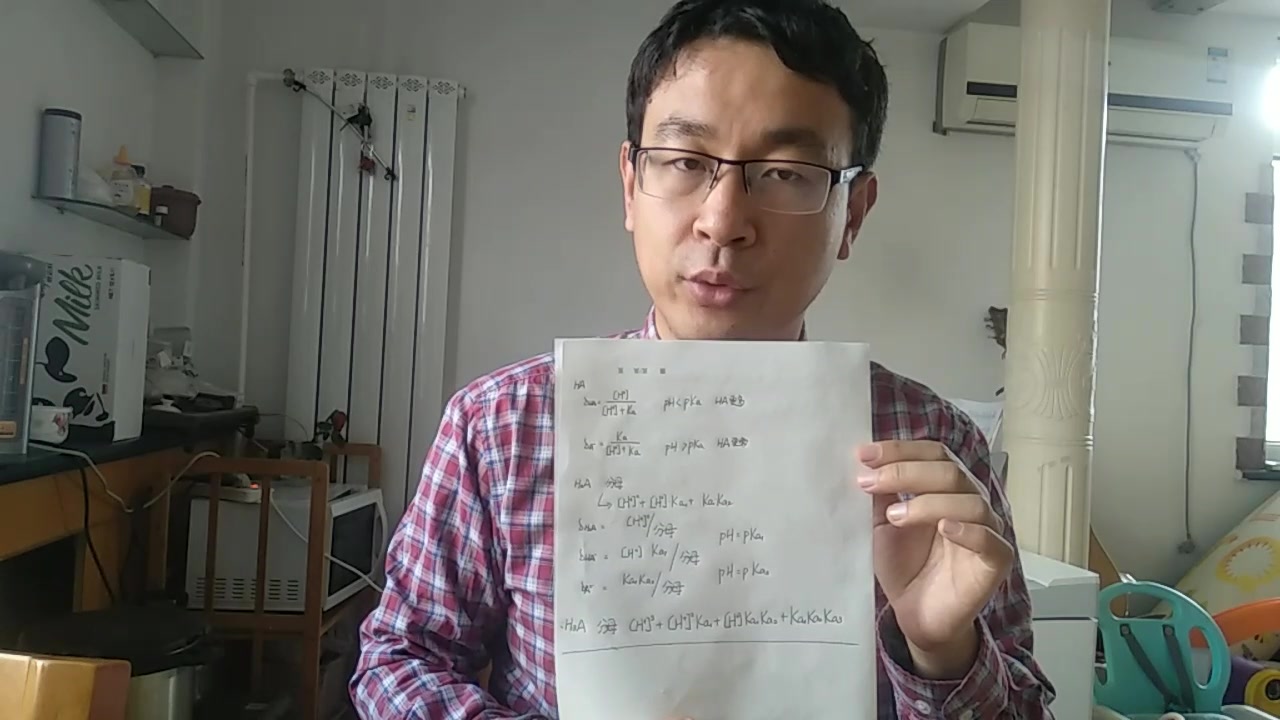 Milk
HA
δHA = [H⁺] / ([H⁺] + Ka) pH < pKa HA更多
δA⁻ = Ka / ([H⁺] + Ka) pH > pKa HA更
H₂A 分母
↳ [H⁺]² + [H⁺] Ka₁ + Ka₁Ka₂
δH₂A = [H⁺]² / 分母 pH = pKa₁
δHA⁻ = [H⁺] Ka₁ / 分母
δA²⁻ = Ka₁Ka₂ / 分母 pH = pKa₂
H₃A 分母 [H⁺]³ + [H⁺]²Ka₁ + [H⁺]Ka₁Ka₂ + Ka₁Ka₂Ka₃